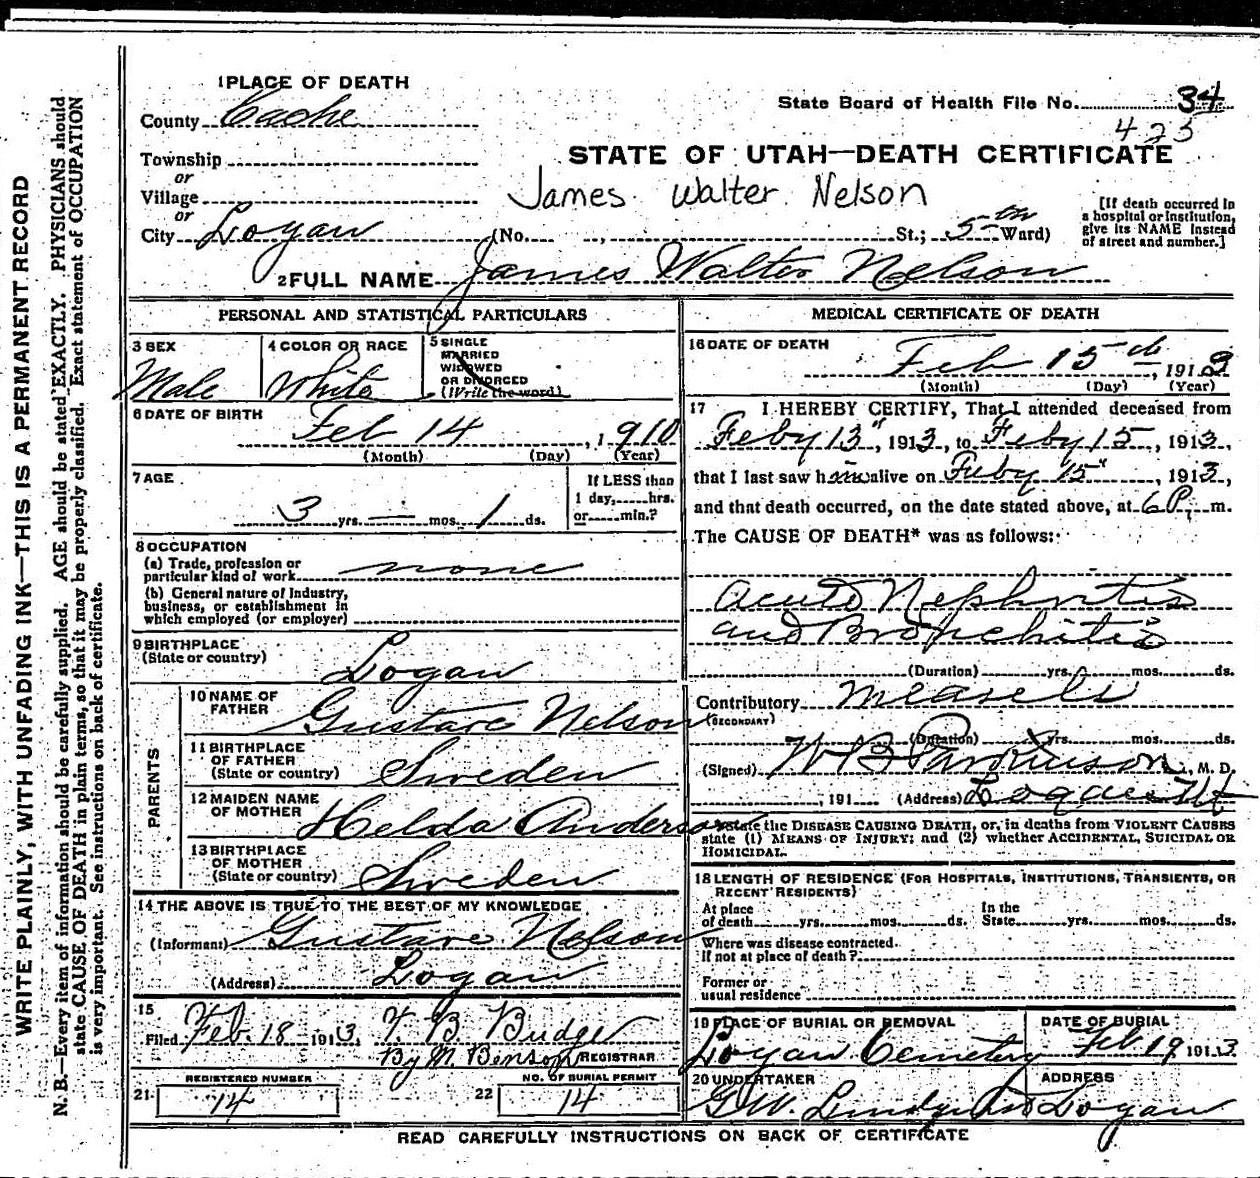 WRITE PLAINLY, WITH UNFADING INK—THIS IS A PERMANENT RECORD
N. B.—Every item of information should be carefully supplied. AGE should be stated EXACTLY. PHYSICIANS should
state CAUSE OF DEATH in plain terms, so that it may be properly classified. Exact statement of OCCUPATION
is very important. See instructions on back of certificate.
1 PLACE OF DEATH
State Board of Health File No. 34
County Cache
423
STATE OF UTAH—DEATH CERTIFICATE
Township
or
Village
James Walter Nelson
or
City Logan (No. , St.; 5th Ward)
[If death occurred in
a hospital or institution,
give its NAME instead
of street and number.]
2 FULL NAME James Walter Nelson
PERSONAL AND STATISTICAL PARTICULARS
3 SEX
Male
4 COLOR OR RACE
White
5 SINGLE
MARRIED
WIDOWED
OR DIVORCED
(Write the word)
6 DATE OF BIRTH
Feb 14, 1910
(Month) (Day) (Year)
7 AGE
3 yrs. — mos. 1 ds.
If LESS than
1 day, hrs.
or min.?
8 OCCUPATION
(a) Trade, profession or
particular kind of work none
(b) General nature of Industry,
business, or establishment in
which employed (or employer)
9 BIRTHPLACE
(State or country)
Logan
PARENTS
10 NAME OF
FATHER
Gustave Nelson
11 BIRTHPLACE
OF FATHER
(State or country)
Sweden
12 MAIDEN NAME
OF MOTHER
Helda Anderson
13 BIRTHPLACE
OF MOTHER
(State or country)
Sweden
14 THE ABOVE IS TRUE TO THE BEST OF MY KNOWLEDGE
(Informant) Gustave Nelson
(Address) Logan
15
Filed Feb. 18 1913, T. B. Budge
By M. Benson REGISTRAR
REGISTERED NUMBER
21 14
NO. OF BURIAL PERMIT
22 14
MEDICAL CERTIFICATE OF DEATH
16 DATE OF DEATH
Feb 15th, 1913
(Month) (Day) (Year)
17 I HEREBY CERTIFY, That I attended deceased from
Feby 13", 1913, to Feby 15, 1913,
that I last saw him alive on Feby 15", 1913,
and that death occurred, on the date stated above, at 6 P. m.
The CAUSE OF DEATH* was as follows:
Acute Nephritis
and Bronchitis
(Duration) yrs. mos. ds.
Contributory Measels
(SECONDARY)
(Duration) yrs. mos. ds.
(Signed) W B Parkinson, M. D.
, 191 (Address) Logan Ut
*State the DISEASE CAUSING DEATH, or, in deaths from VIOLENT CAUSES
state (1) MEANS OF INJURY; and (2) whether ACCIDENTAL, SUICIDAL OR
HOMICIDAL.
18 LENGTH OF RESIDENCE (FOR HOSPITALS, INSTITUTIONS, TRANSIENTS, OR
RECENT RESIDENTS)
At place
of death yrs. mos. ds.
In the
State yrs. mos. ds.
Where was disease contracted.
If not at place of death?
Former or
usual residence
19 PLACE OF BURIAL OR REMOVAL
Logan Cemetery
DATE OF BURIAL
Feb 19 1913
20 UNDERTAKER
G. W. Lindquist
ADDRESS
Logan
READ CAREFULLY INSTRUCTIONS ON BACK OF CERTIFICATE